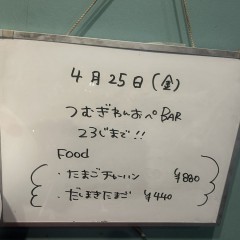 4月25日(金)
つむぎわんおぺBAR
23じまで!!
Food
・たまごチャーハン ¥880
・だしまきたまご ¥440